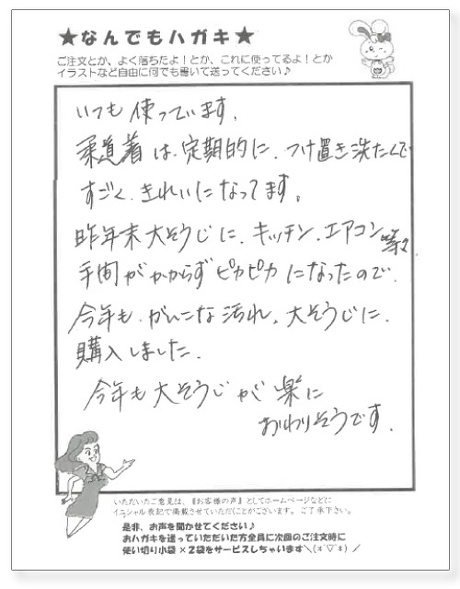 ★なんでもハガキ★
ご注文とか、よく落ちたよ！とか、これに使ってるよ！とか
イラストなど自由に何でも書いて送ってください♪
いつも使っています。
柔道着は、定期的に、つけ置き洗たくで
すごく、きれいになってます。
昨年末大そうじに、キッチン、エアコン等々
手間がかからずピカピカになったので、
今年も、がんこな汚れ、大そうじに、
購入しました。
今年も大そうじが楽に
おわりそうです。
いただいたご意見は、『お客様の声』としてホームページなどに
イニシャル表記で掲載させていただにことがございます。ご了承下さい。
是非、お声を聞かせてください♪
おハガキを送っていただいた方全員に次回のご注文時に
使い切り小袋×2袋をサービスしちゃいます＼(≡^▽^≡)／